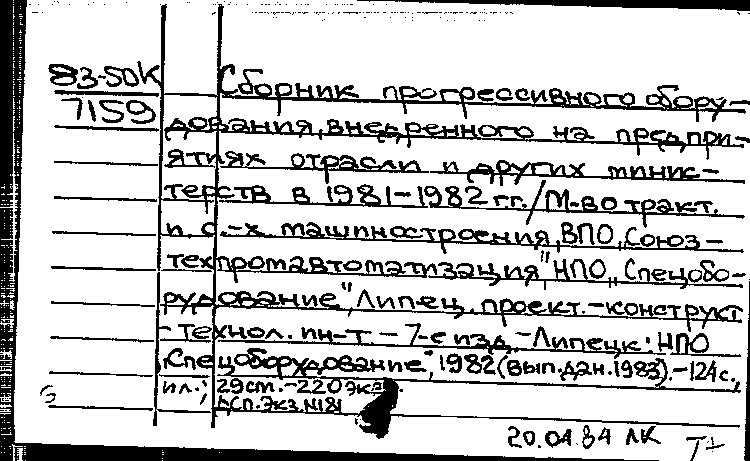 83-50К
7159
Сборник прогрессивного обору-
дования, внедренного на предпри-
ятиях отрасли и других минис-
терств в 1981-1982 гг./М-во тракт.
и с.-х. машиностроения, ВПО „Союз-
техпромавтоматизация", НПО „Спецобо-
рудование", Липец. проект.-конструкт
-технол. ин-т - 7-е изд. - Липецк: НПО
„Спецоборудование", 1982 (вып. дан. 1983). - 124 с.,
ил.; 29 см. - 220 экз.
ДСП. Экз. №181
20.04.84 ЛК Т+